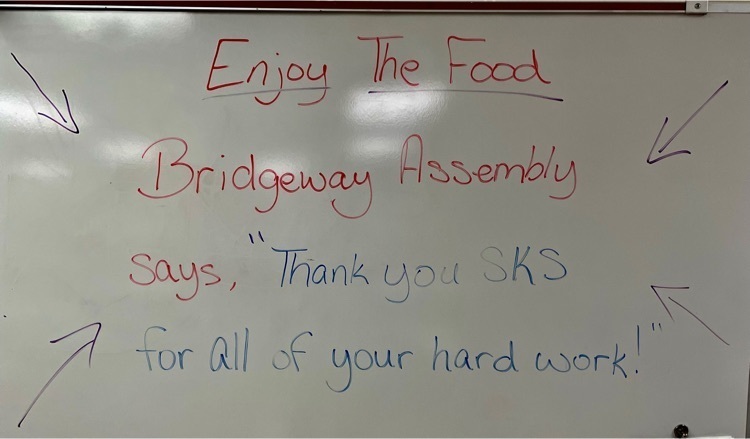 Enjoy The Food
Bridgeway Assembly
says, "Thank you SKS
for all of your hard work!"